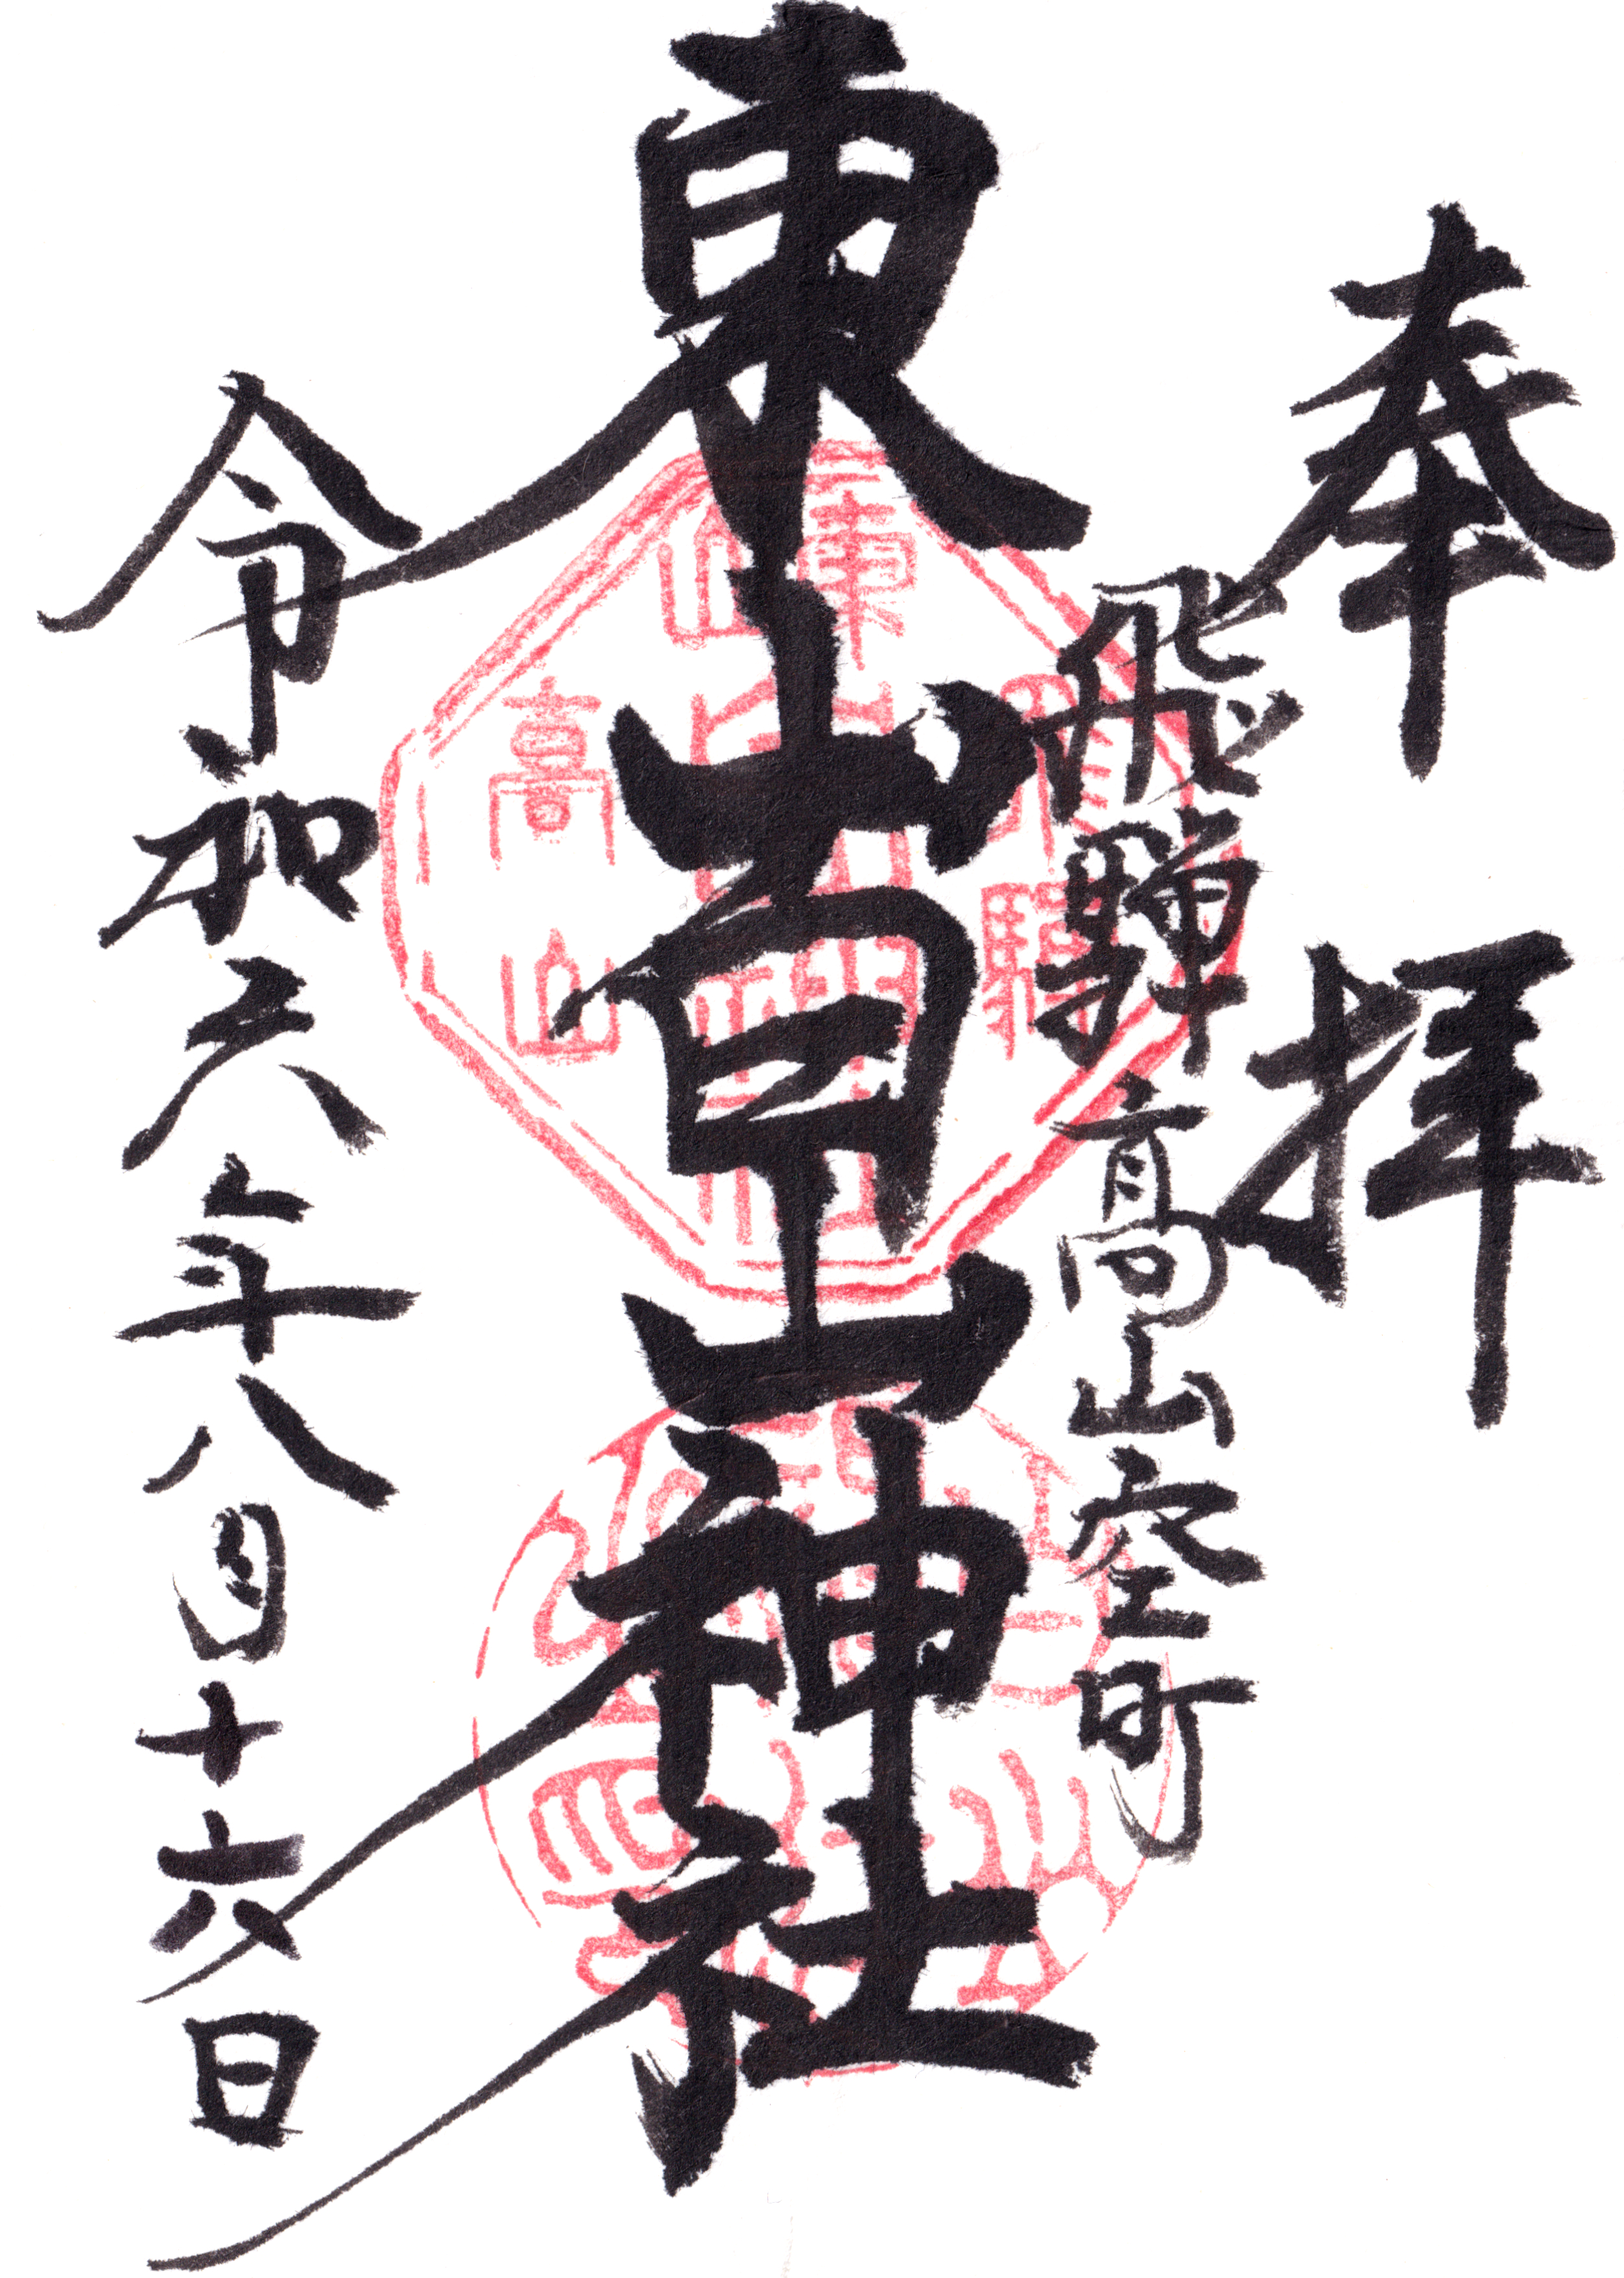 奉拝
飛騨高山空町
東山白山神社
令和六年八月十六日
東山
白山神社
飛騨
高山